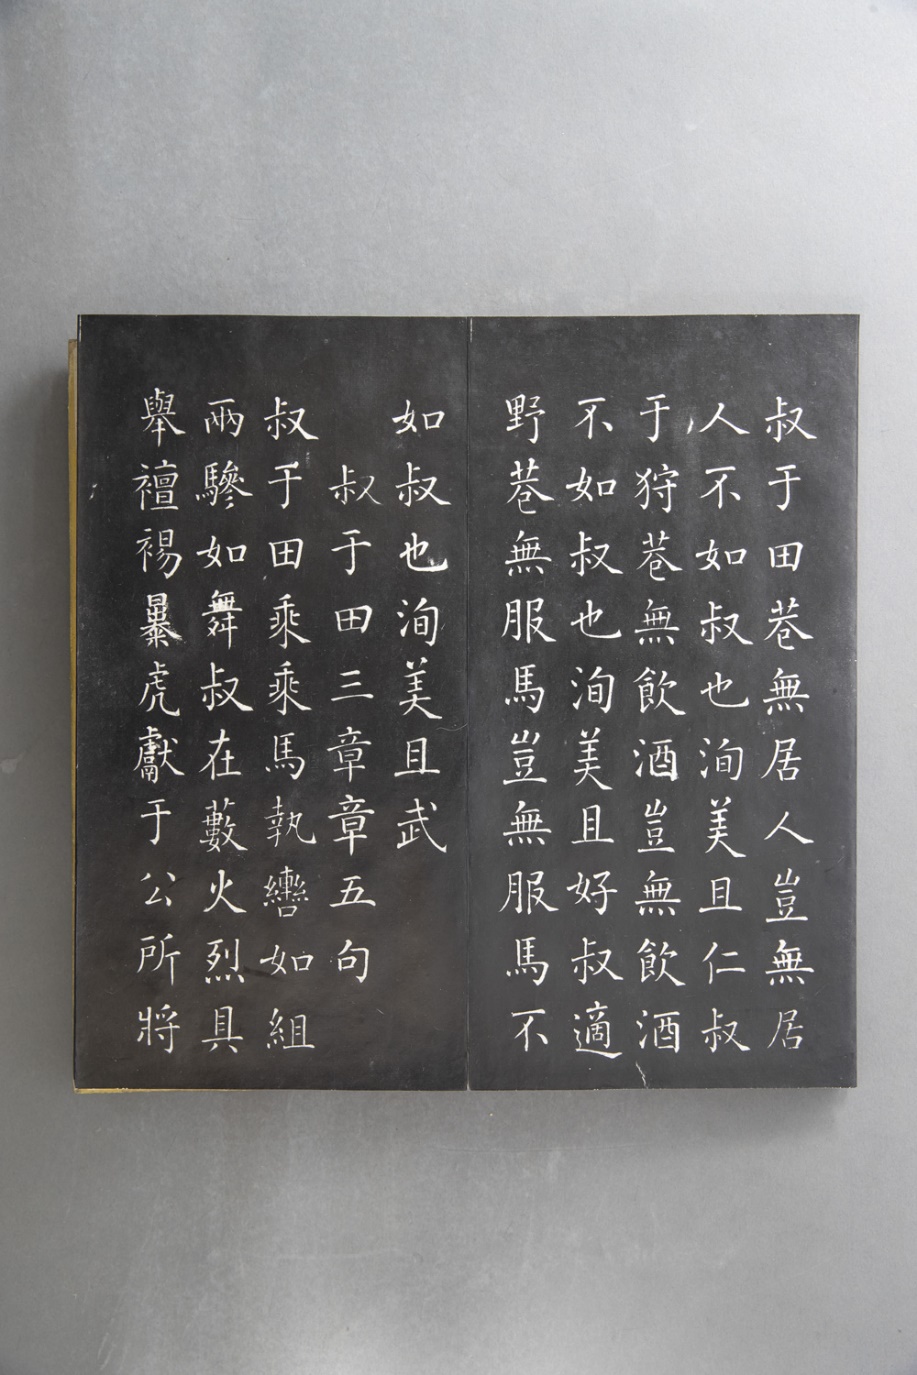 叔于田巷無居人豈無居
人不如叔也洵美且仁叔
于狩巷無飲酒豈無飲酒
不如叔也洵美且好叔適
野巷無服馬豈無服馬不
如叔也洵美且武
叔于田三章章五句
叔于田乘乘馬執轡如組
兩驂如舞叔在藪火烈具
舉襢裼暴虎獻于公所將